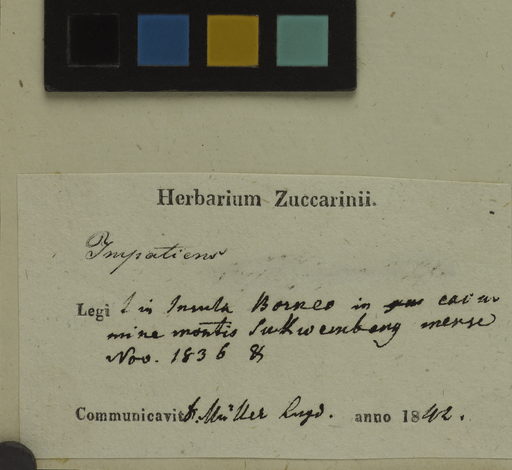 Herbarium Zuccarinii.
Impatiens
Legi t in Insula Borneo in cacu
mine montis Sakwembang mense
Nov. 1836 &
Communicavit Dr. Müller Lugd. anno 1842.